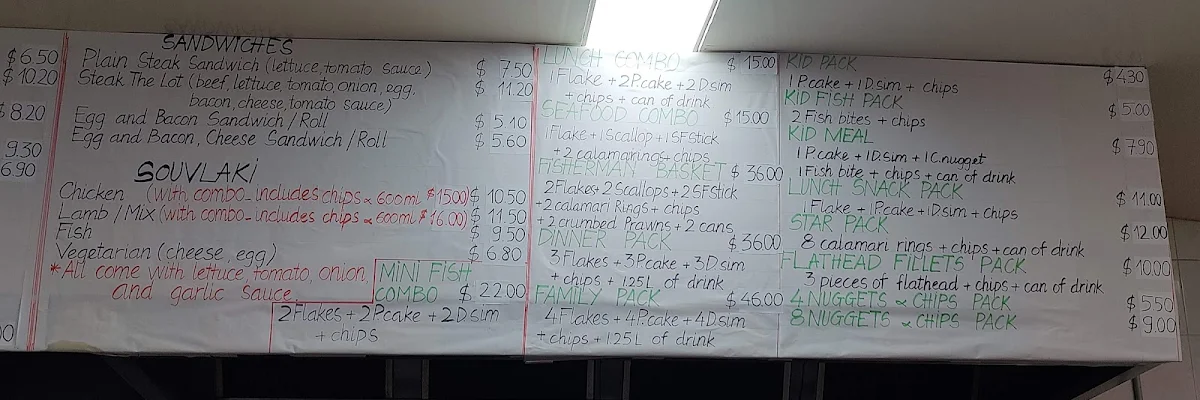 $6.50
$10.20
$8.20
9.30
6.90
SANDWICHES
Plain Steak Sandwich (lettuce, tomato sauce) $ 7.50
Steak The Lot (beef, lettuce, tomato, onion, egg, $ 11.20
bacon, cheese, tomato sauce)
Egg and Bacon Sandwich / Roll $ 5.10
Egg and Bacon, Cheese Sandwich / Roll $ 5.60
SOUVLAKI
Chicken (with combo_includes chips & 600ml $15.00) $ 10.50
Lamb / Mix (with combo_includes chips & 600ml $16.00) $ 11.50
Fish $ 9.50
Vegetarian (cheese, egg) $ 6.80
*All come with lettuce, tomato, onion,
and garlic sauce.
MINI FISH
COMBO $ 22.00
2Flakes + 2P.cake + 2D.sim
+ chips
LUNCH COMBO $ 15.00
1Flake + 2P.cake + 2D.sim
+ chips + can of drink
SEAFOOD COMBO $15.00
1Flake + 1Scallop + 1SFStick
+ 2 calamarirings + chips
FISHERMAN BASKET $ 36.00
2Flakes + 2Scallops + 2SFStick
+ 2 calamari Rings + chips
+ 2 crumbed Prawns + 2 cans
DINNER PACK $36.00
3Flakes + 3P.cake + 3D.sim
+ chips + 1.25L of drink
FAMILY PACK $46.00
4Flakes + 4P.cake + 4D.sim
+ chips + 1.25L of drink
KID PACK $4.30
1P.cake + 1D.sim + chips
KID FISH PACK $5.00
2 Fish bites + chips
KID MEAL $ 7.90
1P.cake + 1D.sim + 1C.nugget
1Fish bite + chips + can of drink
LUNCH SNACK PACK $ 11.00
1Flake + 1P.cake + 1D.sim + chips
STAR PACK $ 12.00
8 calamari rings + chips + can of drink
FLATHEAD FILLETS PACK $10.00
3 pieces of flathead + chips + can of drink
4 NUGGETS & CHIPS PACK $ 5.50
8 NUGGETS & CHIPS PACK $ 9.00